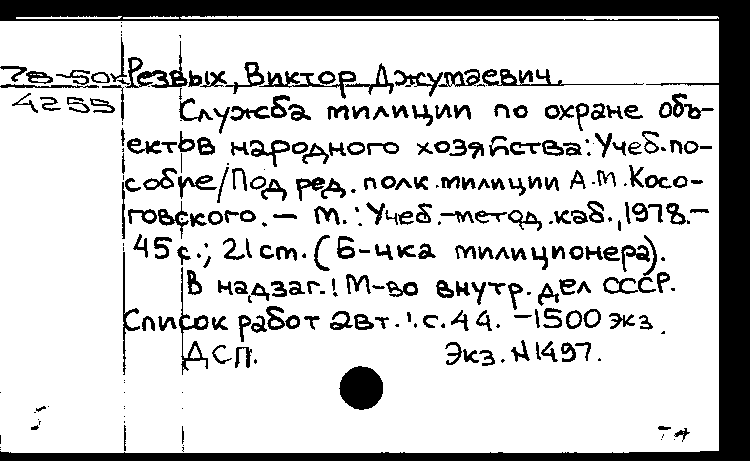 78-50к Резвых, Виктор Джумаевич.
4255 Служба милиции по охране объ-
ектов народного хозяйства: Учеб.по-
собие/Под ред. полк.милиции А.М.Косо-
говского. — М.: Учеб.-метод.каб., 1978.-
45 с.; 21 cm. (Б-чка милиционера).
В надзаг.: М-во внутр. дел СССР.
Список работ авт.: с.44. -1500 экз.
ДСП. Экз. N1497.